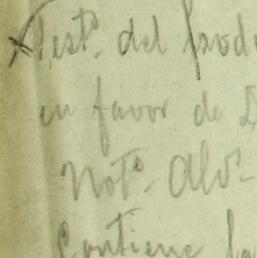 Testº. del
en favor de
Notº. Alvº.
Contiene